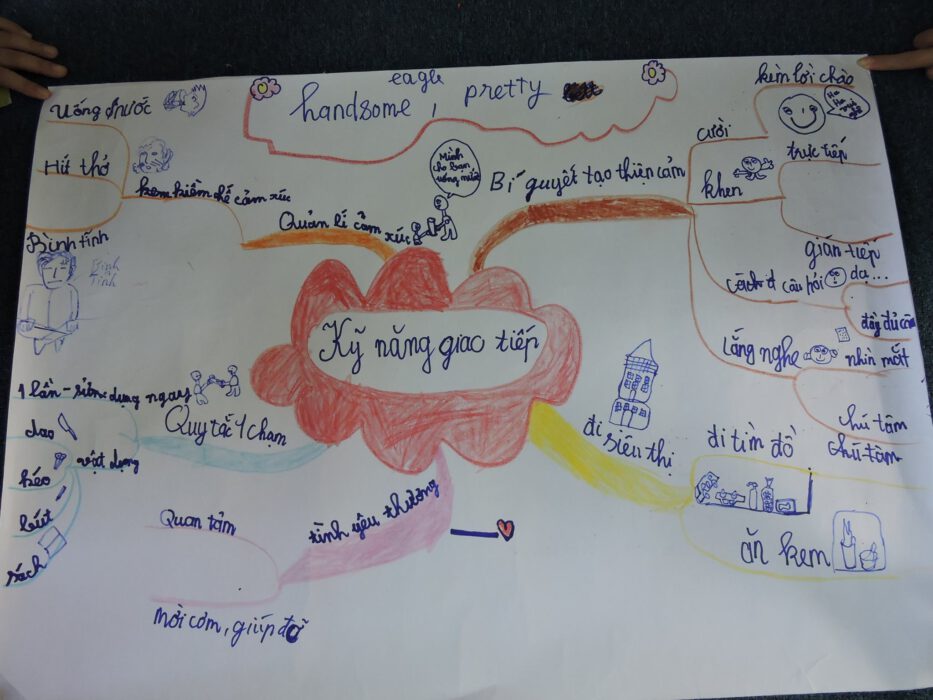 eagle
handsome, pretty
Kỹ năng giao tiếp
Bí quyết tạo thiện cảm
cười
kèm lời chào
khen
trực tiếp
gián tiếp
câu hỏi
dạ...
đầy đủ câu
Lắng nghe
nhìn mắt
chú tâm
chú tâm
đi siêu thị
đi tìm đồ
ăn kem
tình yêu thương
Quan tâm
mời cơm, giúp đỡ
Quy tắc 1 chạm
1 lần - sử dụng ngay
vật dụng
dao
kéo
bút
sách
Quản lí cảm xúc
Mình
cho bạn
uống nước
kiềm chế cảm xúc
Uống nước
Hít thở
Bình tĩnh
Bình
tĩnh